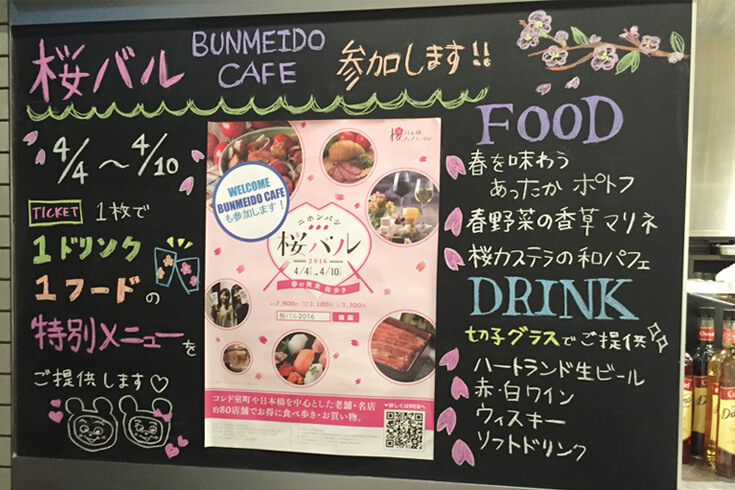 桜バル BUNMEIDO CAFE 参加します!!
4/4～4/10
TICKET 1枚で
1ドリンク
1フードの
特別メニューを
ご提供します♡
WELCOME
BUNMEIDO CAFE
も参加します！
ニホンバシ
桜バル
2016
4/4▶4/10
春の美食 街歩き
2,900円 3,100円 3,300円
桜バル2016 検索
コレド室町や日本橋を中心とした老舗・名店
約80店舗でお得に食べ歩き・お買い物。
▼詳しくはWEBへ
FOOD
春を味わう
あったか ポトフ
春野菜の香草マリネ
桜カステラの和パフェ
DRINK
切子グラスでご提供
ハートランド生ビール
赤・白ワイン
ウィスキー
ソフトドリンク